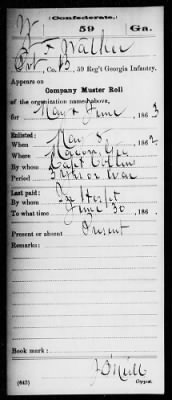 (Confederate.)
W 59 Ga.
Z F Walker
Pvt, Co. B, 59 Reg't Georgia Infantry.
Appears on
Company Muster Roll
of the organization named above,
for May & June, 1863
Enlisted:
When May 8, 1862
Where Macon Ga
By whom Capt Collier
Period 3 yrs or war
Last paid:
By whom
To what time June 30, 186
Present or absent Present
Remarks:
Book mark:
J O'Neill
(642) Copyist.